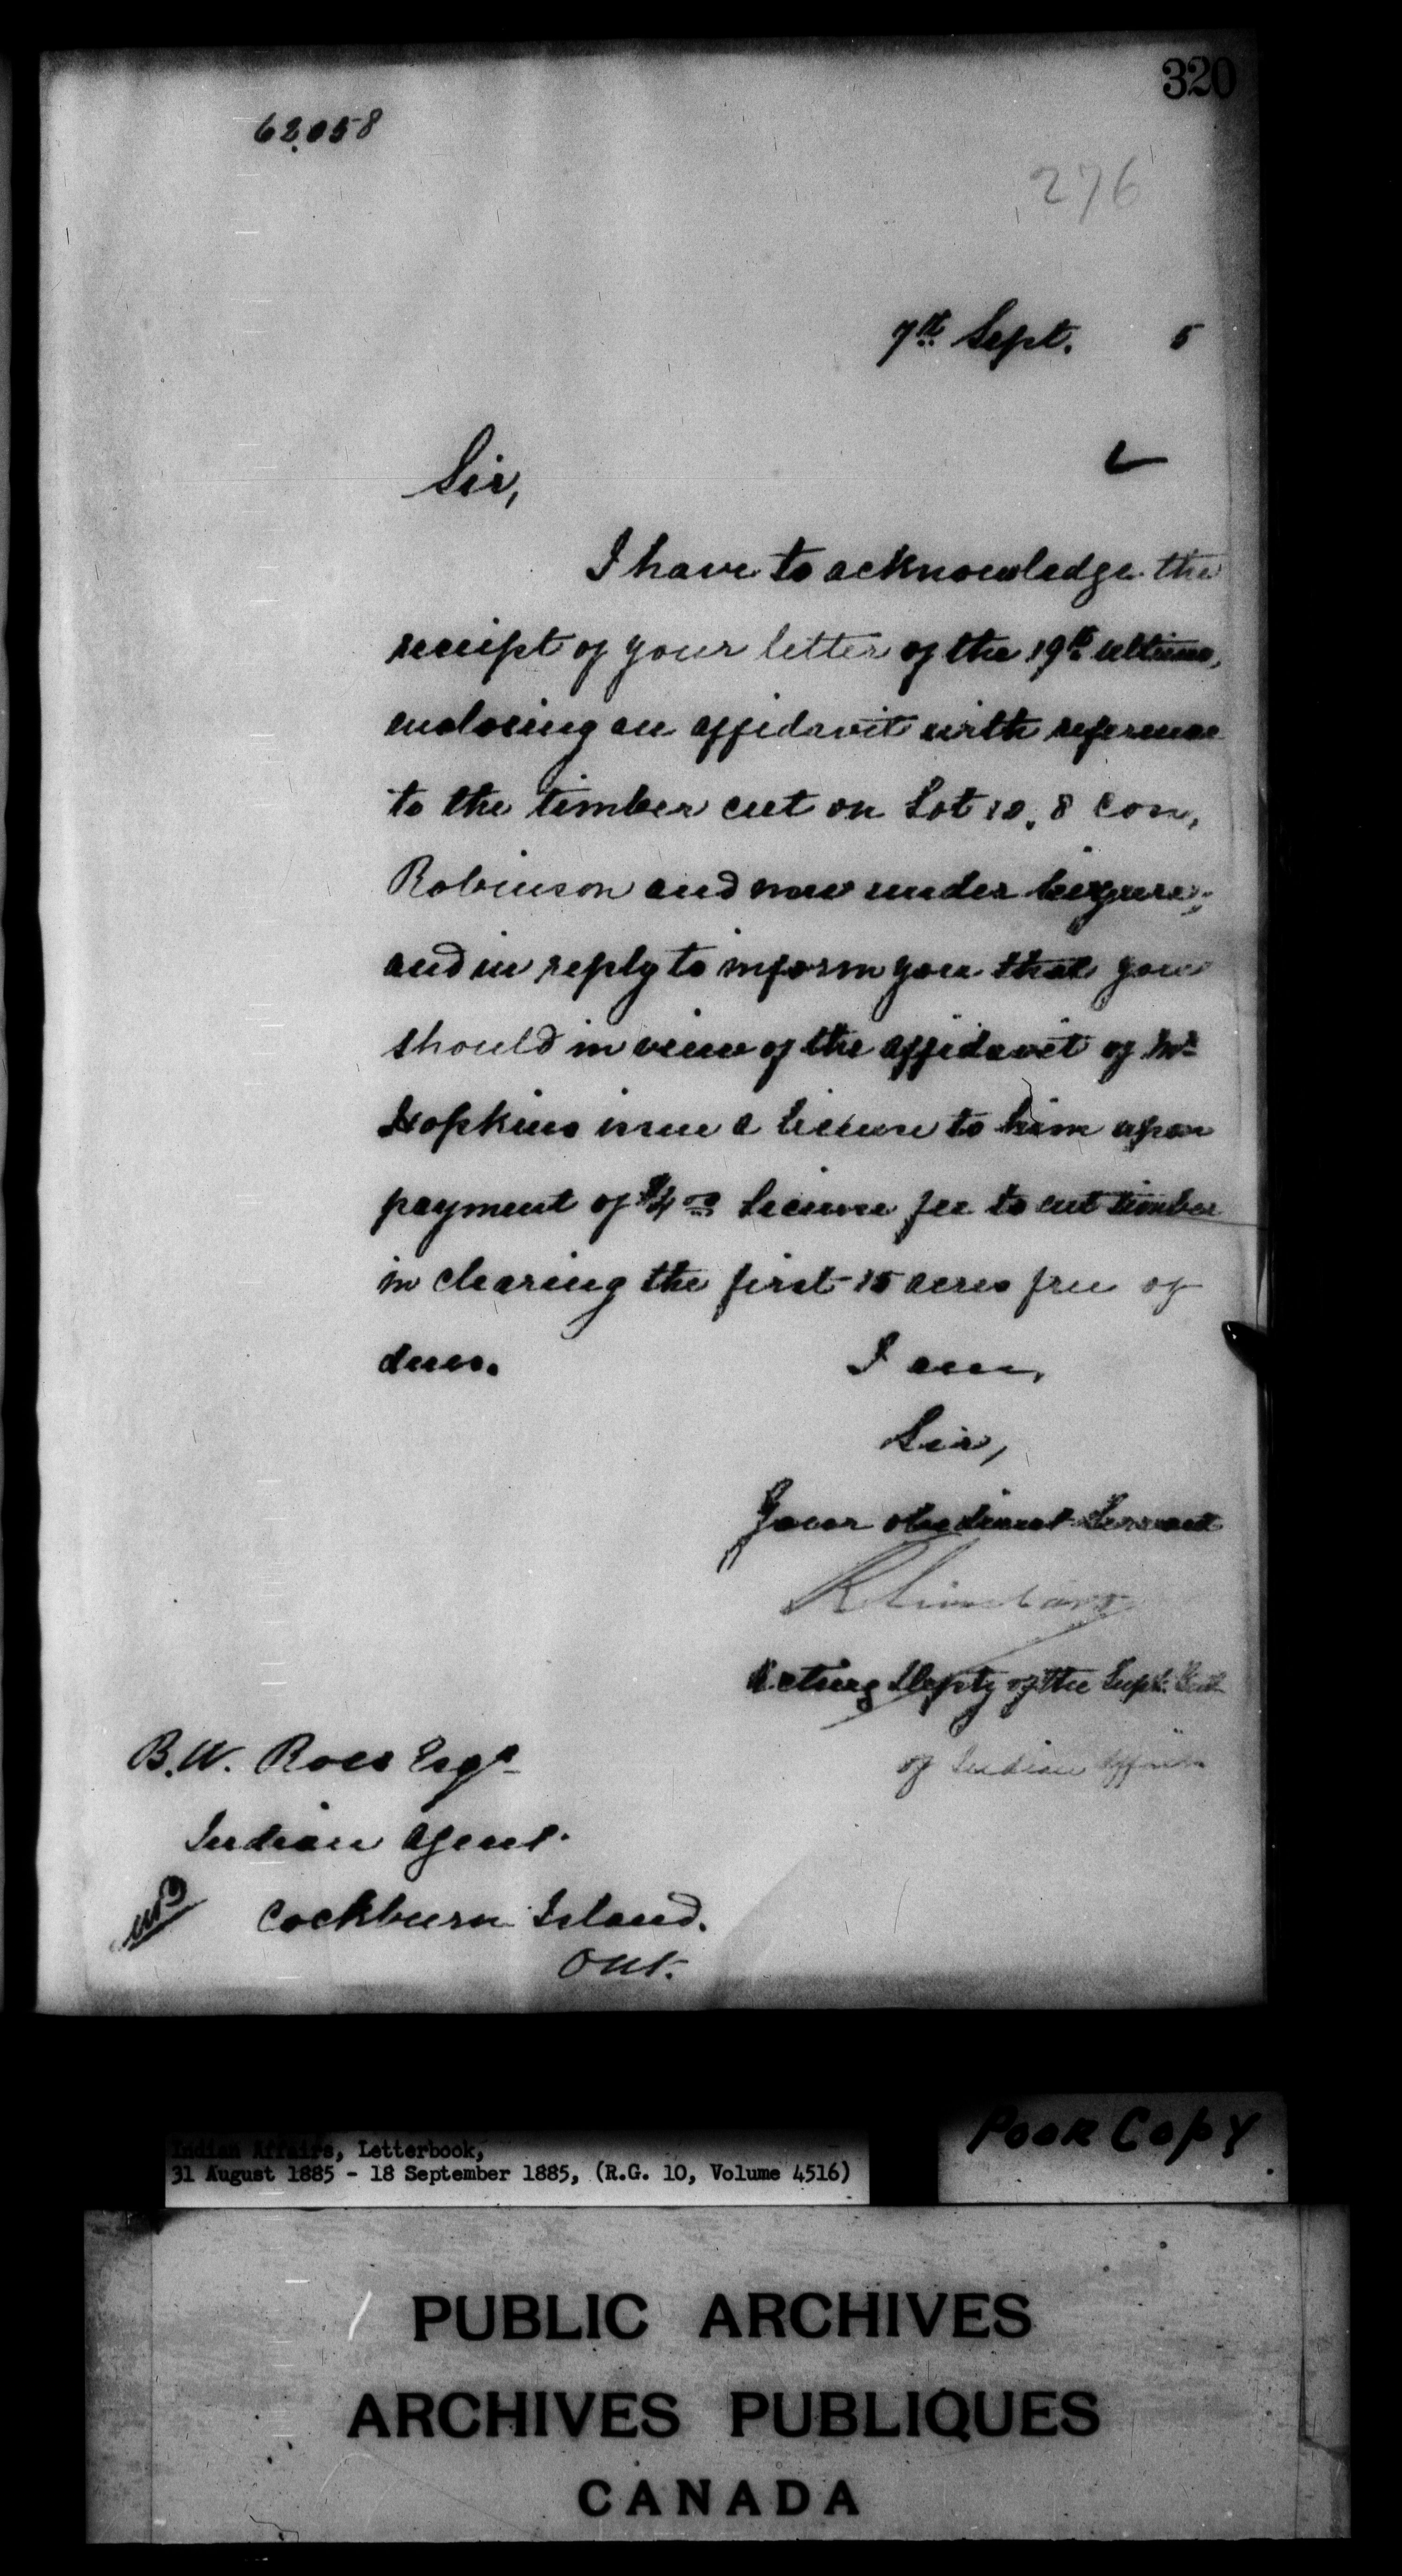 320
62058
276
7th Sept. 5
Sir,
I have to acknowledge the
receipt of your letter of the 19th ultimo,
enclosing an affidavit with reference
to the timber cut on Lot 10, 8 Con,
Robinson and now under seizure,
and in reply to inform you that you
should in view of the affidavit of Mr
Hopkins issue a license to him upon
payment of $4.00 license fee to cut timber
in clearing the first 15 acres free of
dues.
I am,
Sir,
Your obedient Servant
Acting Depty of the Supt. Genl
of Indian Affairs
B.W. Ross Esqr
Indian Agent.
Cockburn Island.
Ont.
Poor Copy
Indian Affairs, Letterbook,
31 August 1885 - 18 September 1885, (R.G. 10, Volume 4516)
PUBLIC ARCHIVES
ARCHIVES PUBLIQUES
CANADA